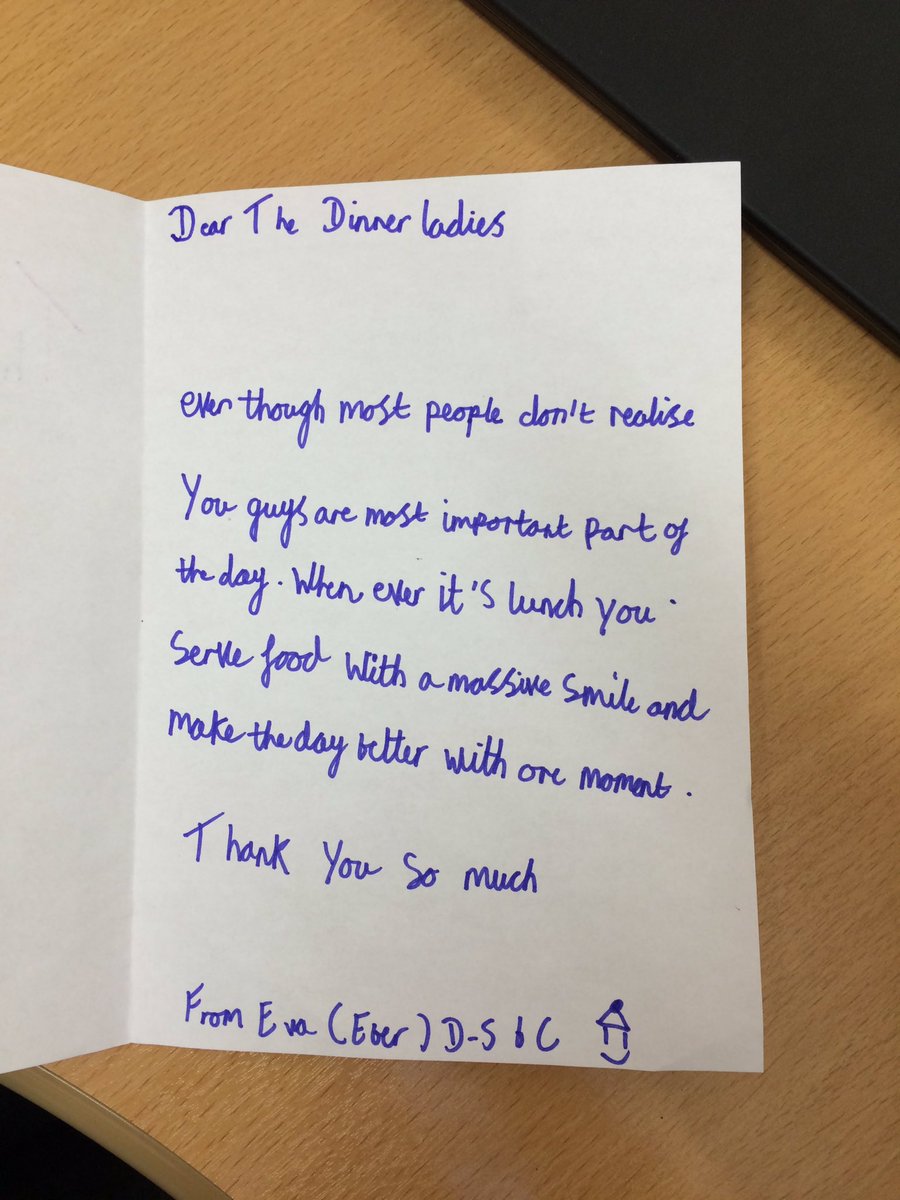 Dear The Dinner ladies
even though most people don't realise
You guys are most important part of
the day. When ever it's lunch you
Serve food With a massive Smile and
make the day better with one moment.
Thank You So much
From Eva (Eber) D-S 6C